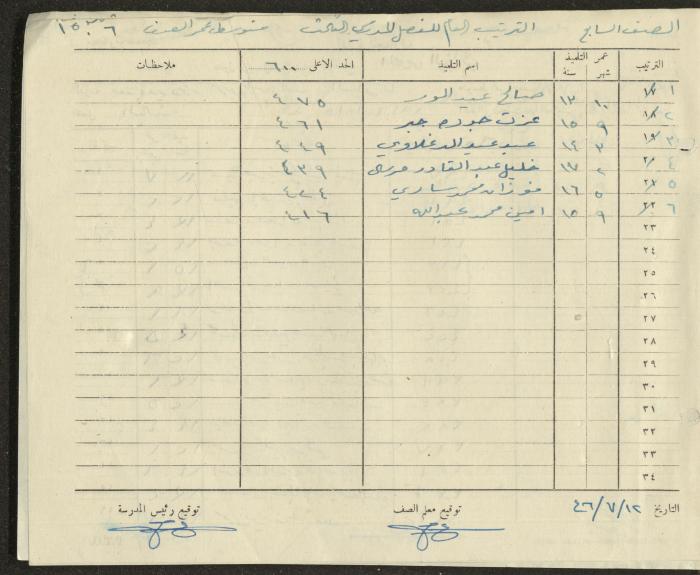 الصف السابع الترتيب العام للفصل المدرسي الثالث متوسط عمر الصف ٦ ١٥
الترتيب عمر التلميذ شهر سنة اسم التلميذ الحد الاعلى ٦٠٠ ملاحظات
١ ١٧ ١٠ ١٣ صالح عبد ٤٧٥
٢ ١٨ ٩ ١٥ عزت جوده جبر ٤٦١
٣ ١٩ ٧ ١٤ عبد ٤٤٩
٤ ٢٠ ٢ ١٧ خليل عبد القادر ٤٣٩
٥ ٢١ ٥ ١٦ فوزان محمد ساري ٤٢٤
٦ ٢٢ ٩ ١٥ امين محمد عبدالله ٤١٦
٢٣
٢٤
٢٥
٢٦
٢٧
٢٨
٢٩
٣٠
٣١
٣٢
٣٣
٣٤
التاريخ ٤٦/٧/١٢ توقيع معلم الصف توقيع رئيس المدرسة